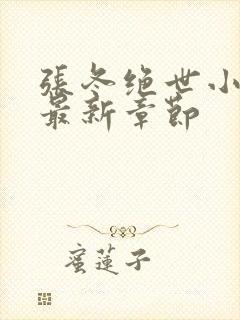 張冬绝世小
最新章節
蜜蓮子